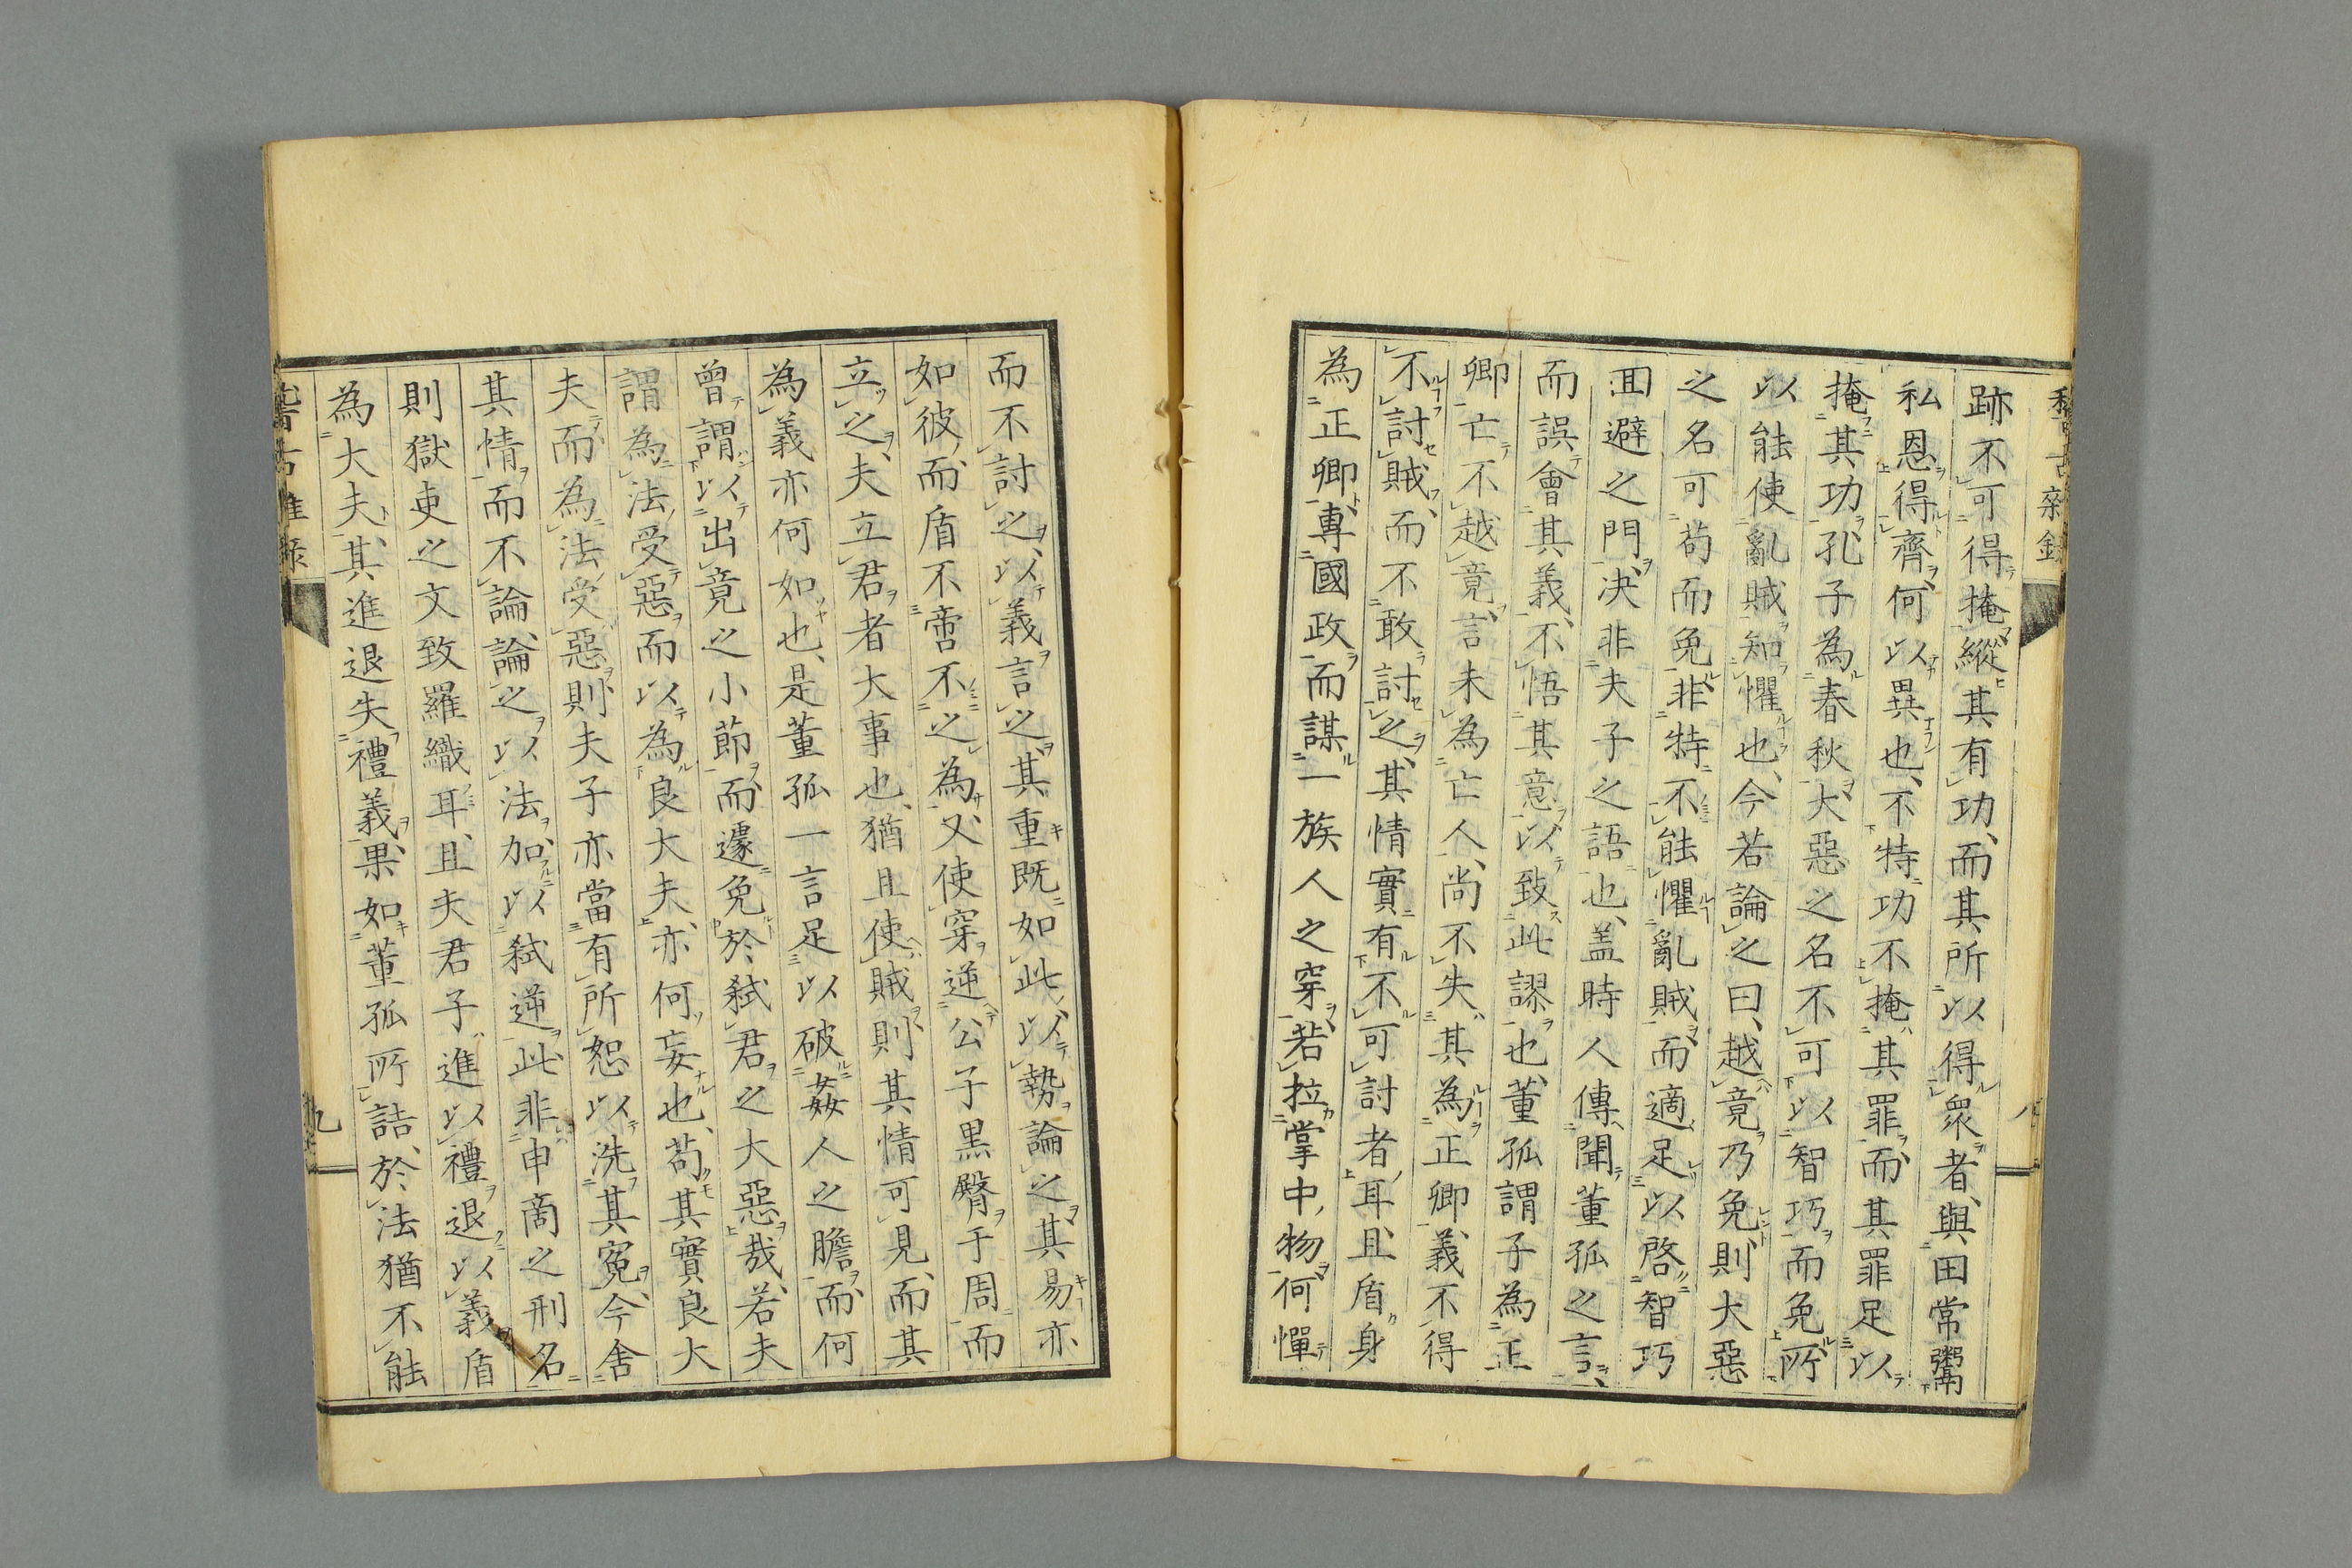 跡不可得掩縱其有功、而其所以得衆者、與田常鬻
私恩得齊、何以異也、不特功不掩其罪、而其罪足以
掩其功、孔子為春秋、大惡之名不可以智巧而免、所
以能使亂賊知懼也、今若論之曰、越竟乃免、則大惡
之名可苟而免、非特不能懼亂賊、而適足以啓智巧
囬避之門、决非夫子之語也、盖時人傳聞董孤之言、
而誤會其義、不悟其意、以致此謬也、董孤謂子為正
卿亡不越竟、言未為亡人、尚不失其為正卿、義不得
不討賊、而不敢討之、其情實有不可討者耳、且盾身
為正卿、專國政而謀一族人之穿、若拉掌中物、何憚
而不討之、以義言之、其重既如此、以勢論之、其易亦
如彼、而盾不啻不之為、又使穿逆公子黒臀于周而
立之、夫立君者大事也、猶且使賊、則其情可見、而其
為義亦何如也、是董孤一言足以破姦人之膽、而何
曾謂以出竟之小節、而遽免於弑君之大惡哉、若夫
謂為法受惡而以為良大夫、亦何妄也、苟其實良大
夫而為法受惡、則夫子亦當有所恕以洗其寃、今舍
其情而不論、論之以法、加以弑逆、此非申啇之刑名
則獄吏之文致羅織耳、且夫君子進以禮退以義、盾
為大夫、其進退失禮義、果如董孤所詰、於法猶不能
稽古雜録
九